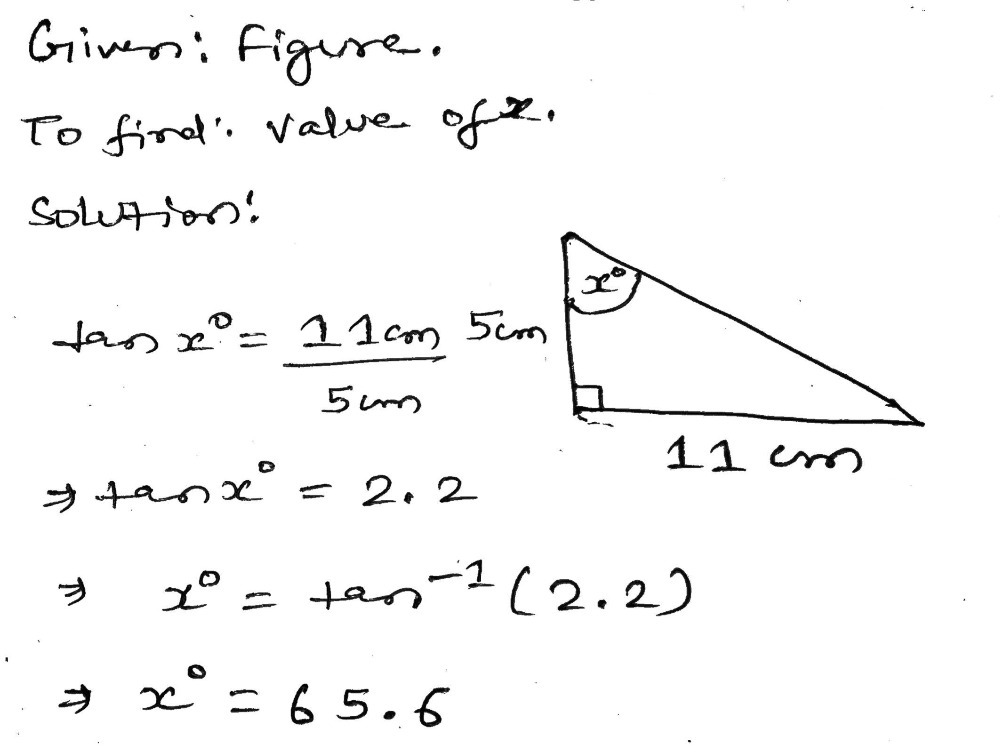 Given: Figure.
To find: Value of x.
Solution:
x°
tan x° = 11cm / 5cm
5cm
11 cm
⇒ tan x° = 2.2
⇒ x° = tan⁻¹ (2.2)
⇒ x° = 65.6